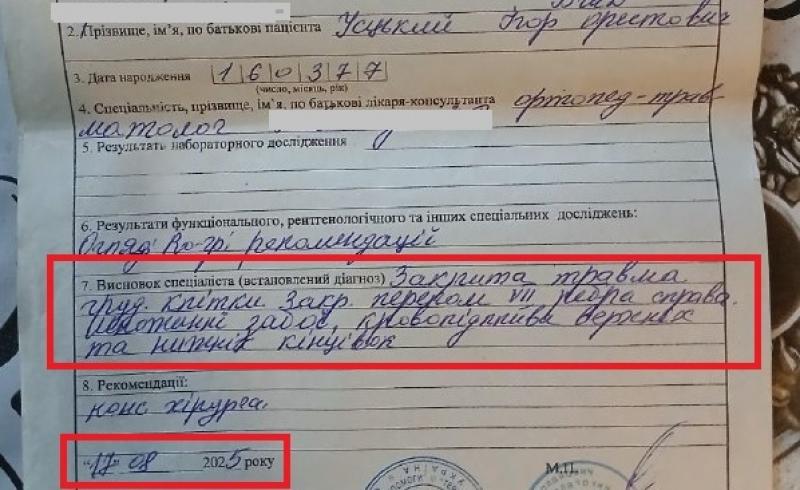 2. Прізвище, ім'я, по батькові пацієнта Усцький Ігор Орестович
3. Дата народження 1 6 0 3 7 7
(число, місяць, рік)
4. Спеціальність, прізвище, ім'я, по батькові лікаря-консультанта ортопед-трав-
матолог
5. Результат лабораторного дослідження
6. Результати функціонального, рентгенологічного та інших спеціальних досліджень:
Огляд; R-грі рекомендації
7. Висновок спеціаліста (встановлений діагноз) Закрита травма
груд. клітки Закр. перелом VII ребра справа.
забої, кровопідпливи верхніх
та нижніх кінцівок
8. Рекомендації:
конс хірурга.
"17" 08 2025 року
М.П.
УКРАЇНА